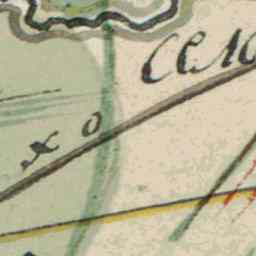 село
хо